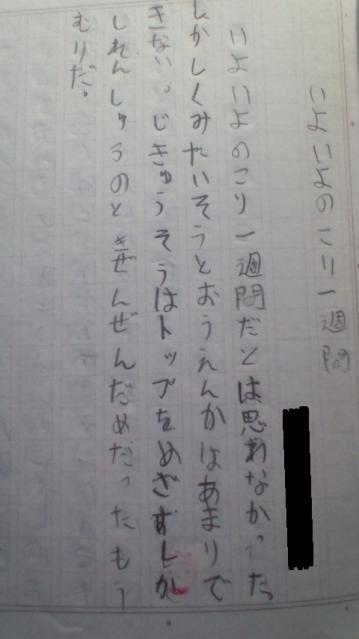 いよいよのこり一週間
いよいよのこり一週間だとは思わなかった。
しかしくみたいそうとおうえんかはあまりで
きない。じきゅうそうはトップをめざすしか
しれんしゅうのときぜんぜんだめだったもう
むりだ。